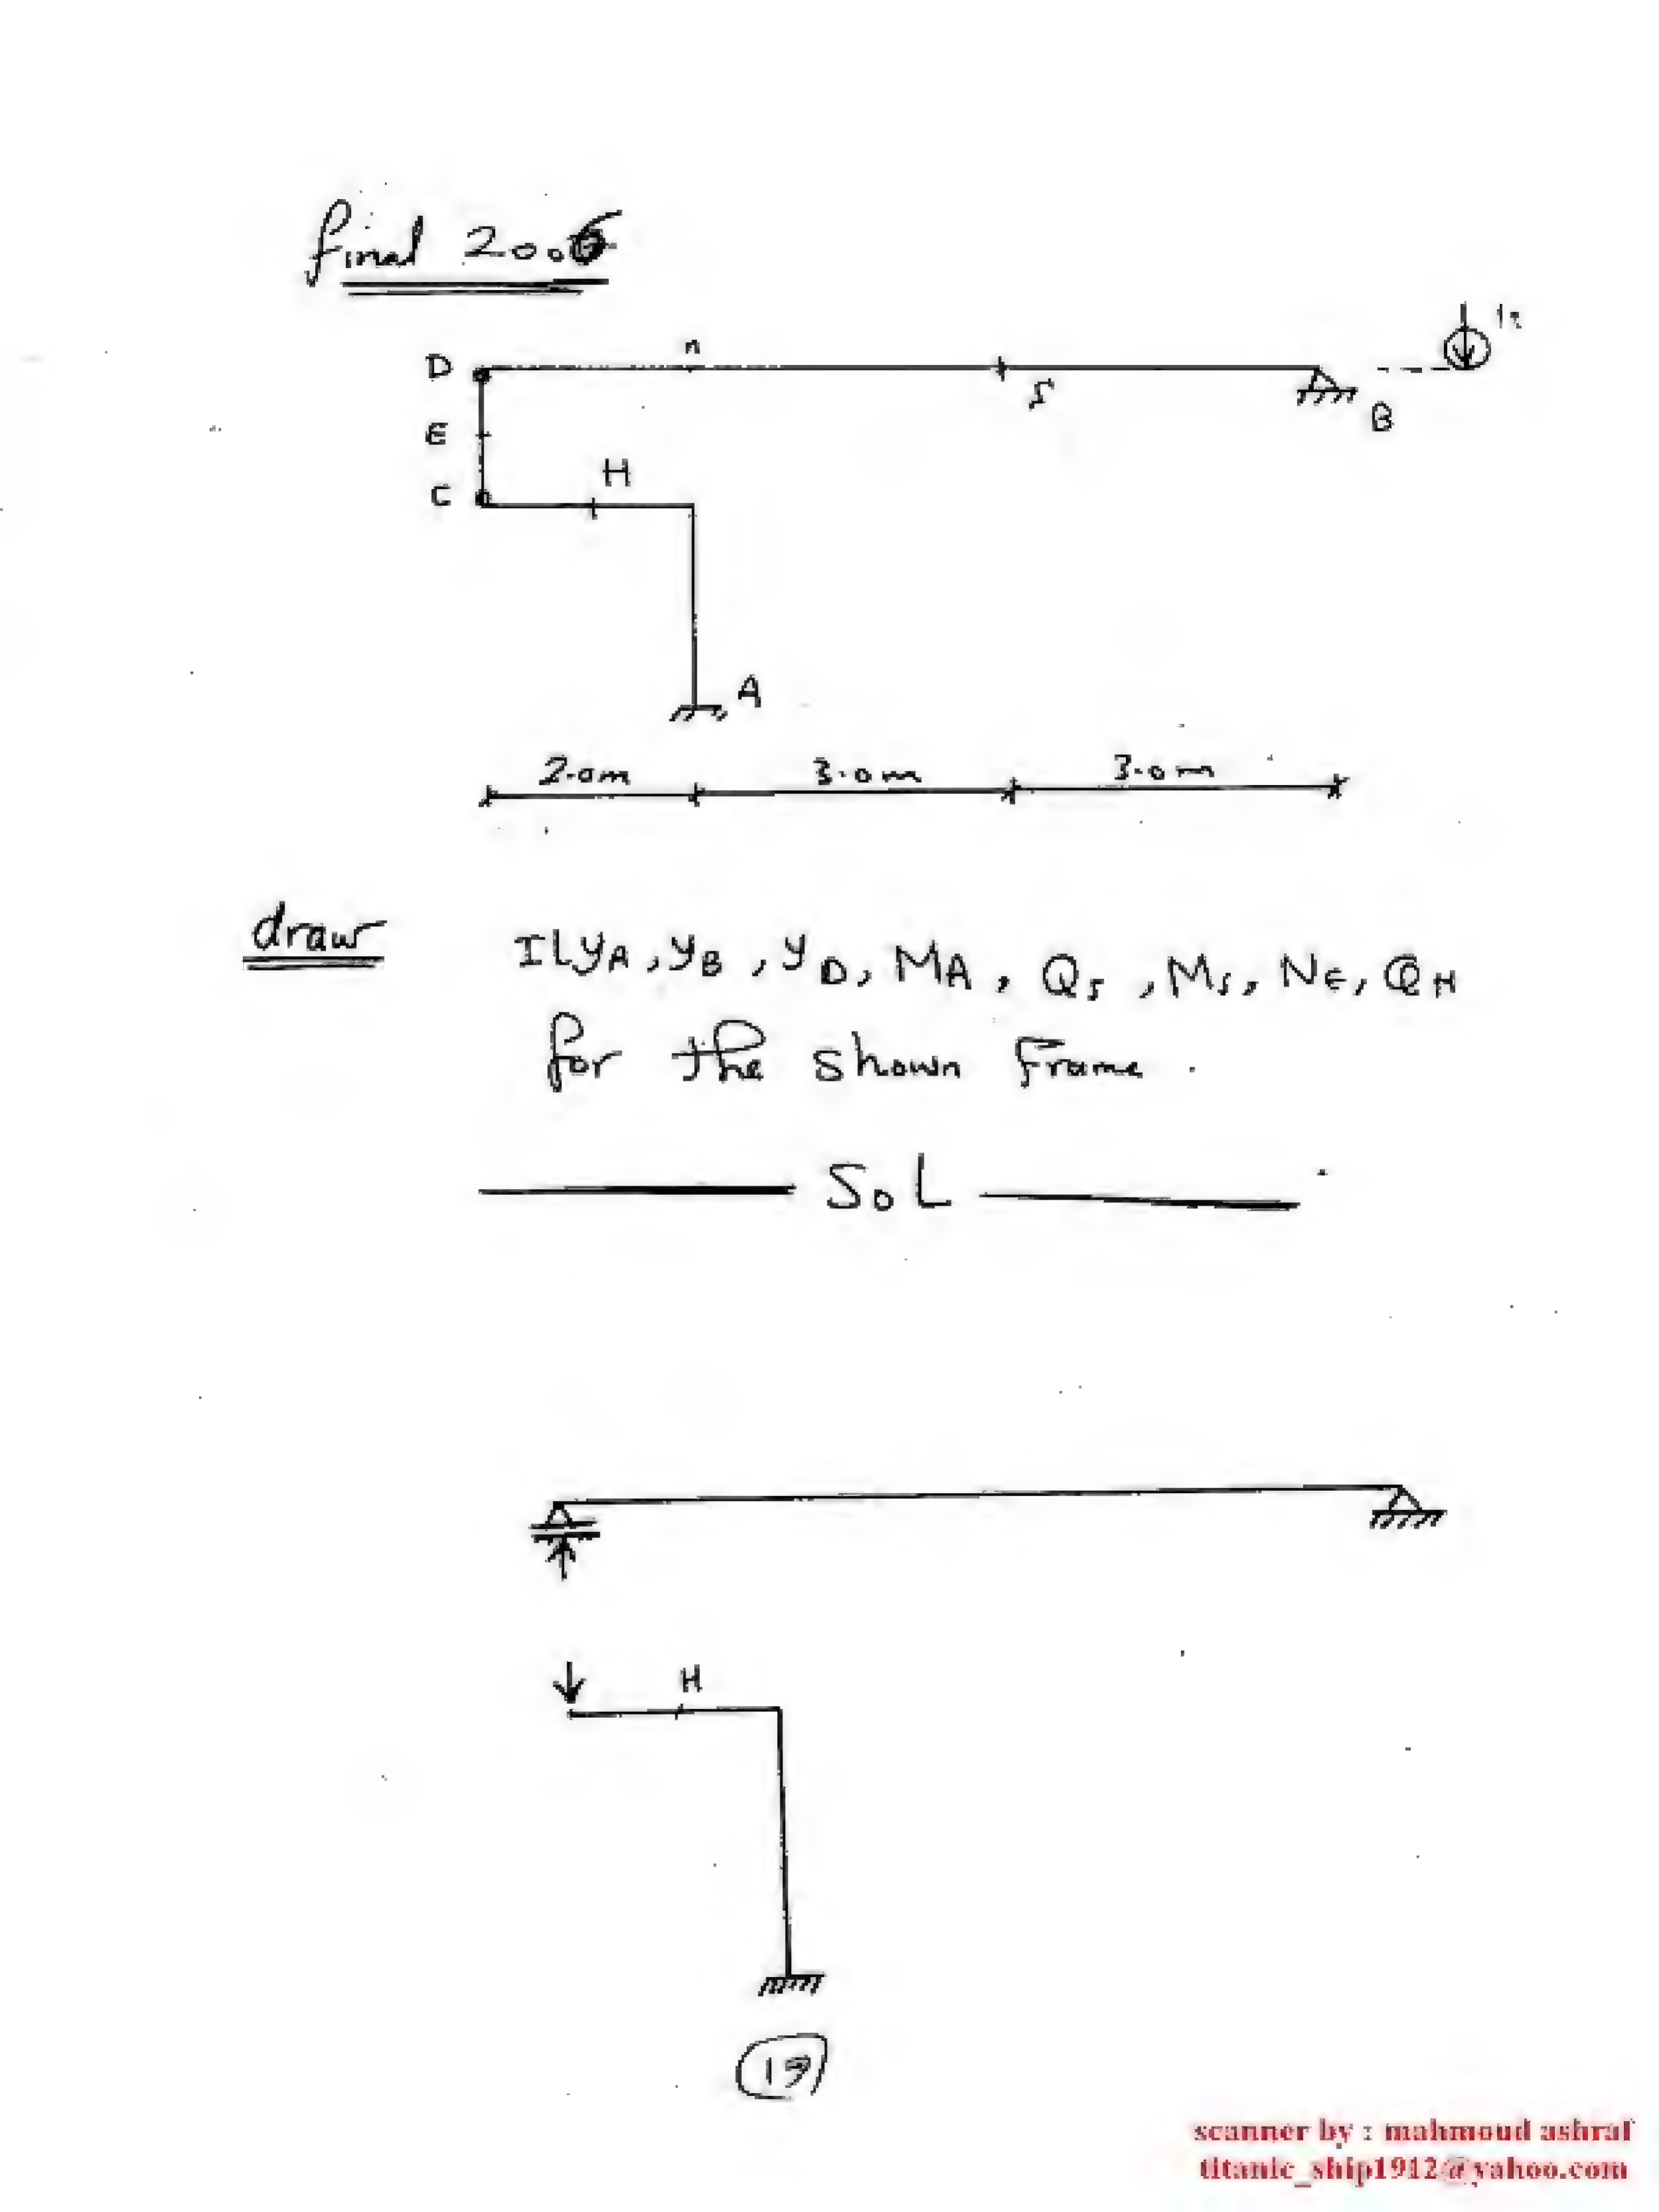 final 2006
n
1t
D
S
B
E
H
C
A
2.0m 3.0m 3.0m
draw ILyA, yB, yD, MA, QS, MS, NE, QH
for the shown Frame.
SOL
H
scanner by : mahmoud ashraf
titanic_ship1912@yahoo.com